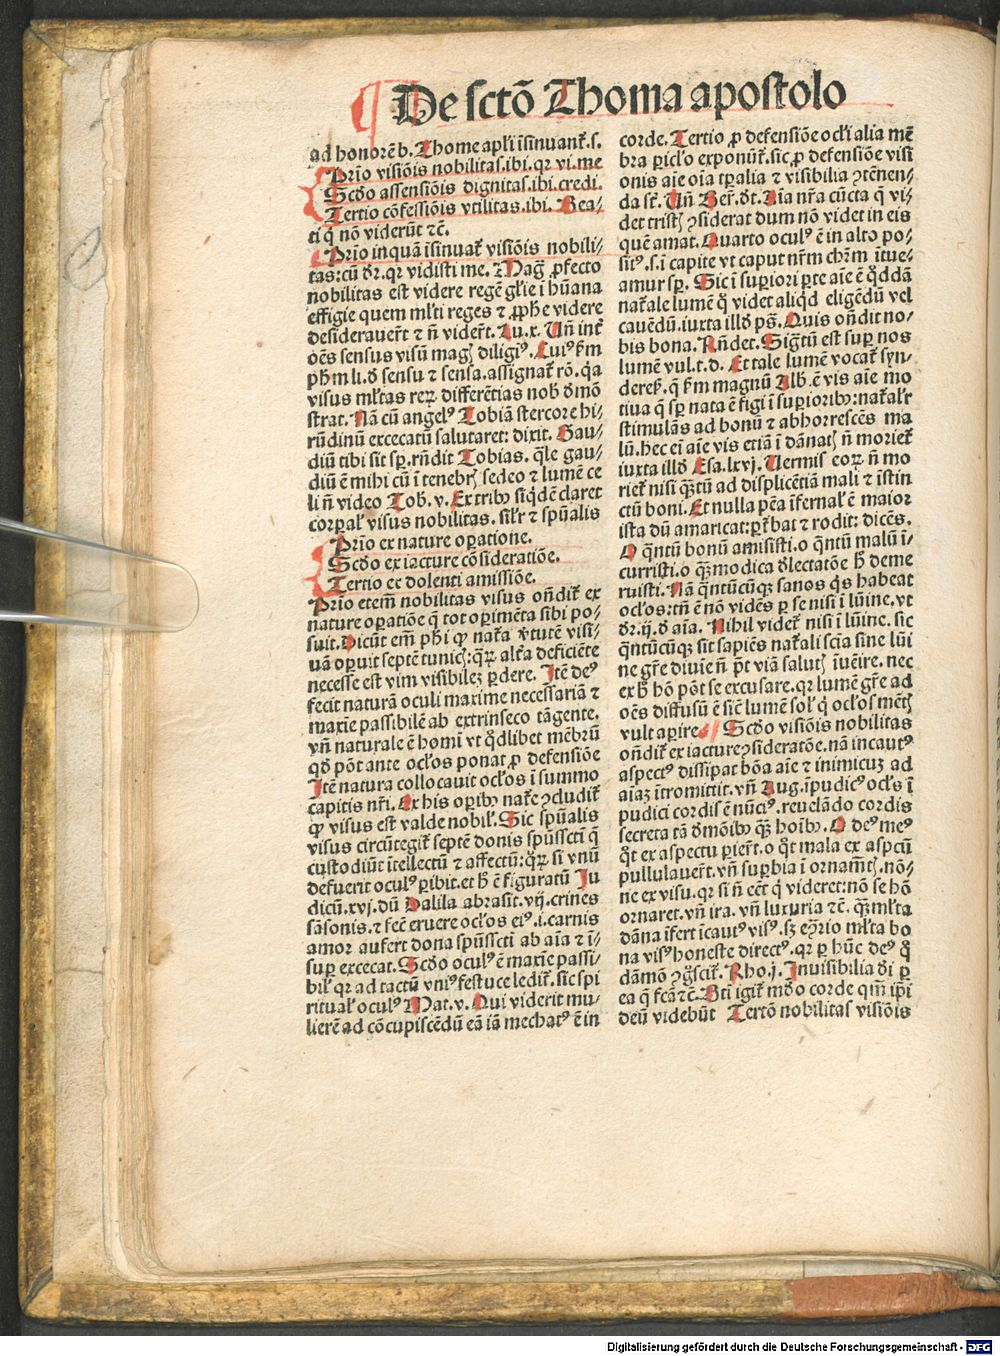 De sctō Thoma apostolo
ad honorē b. Thome apl'i īsinuant̄. s.
Prīo visiōis nobilitas. ibi. qr vi. me
Scd̄o assensiōis dignitas. ibi. credi.
Tertio cōfessiōis vtilitas. ibi. Bea-
ti q̄ nō viderūt ⁊c̄.
Prīo inquā īsinuat̄ visiōis nobili-
tas: cū dr̄. qr vidisti me. Maḡ ꝓfecto
nobilitas est videre regē gl'ie ī hūana
effigie quem ml'ti reges ⁊ ꝓph̄e videre
desiderauer̄t ⁊ n̄ vider̄t. Lu. x. Un̄ int̄
oēs sensus visū magꝭ diligiꝰ. Cuiꝰ ẜm
ph̄m li. d̄ sensu ⁊ sensa. assignat̄ rō. q̄a
visus ml'tas reꝝ differētias nob̄ d̄mō
strat. Nā cū angelꝰ Tobiā stercore hi-
rūdinū excecatū salutaret: dixit. Gau-
diū tibi sit sp̄. rn̄dit Tobias. q̄le gau-
diū ē mihi cū ī tenebrꝭ sedeo ⁊ lumē ce
li n̄ video Tob̄. v. Ex tribꝰ siq̄dē claret
corꝑal' visus nobilitas. sil'r ⁊ spūalis
Prīo ex nature oꝑatione.
Scd̄o ex iacture cōsideratiōe.
Tertio ex dolenti amissiōe.
Prīo etem̄ nobilitas visus on̄dit̄ ex
nature oꝑatiōe q̄ tot oꝑimēta sibi po-
suit. Dicūt em̄ ph̄i ꝙ nat̄a v̓tutē visi-
uā oꝑuit septē tunicꝭ: q̄ꝝ alt̄a deficiēte
necesse est vim visibileꝫ ꝑdere. Itē deꝰ
fecit naturā oculi maxime necessariā ⁊
maxīe passibilē ab extrinseco tāgente.
vn̄ naturale ē homī vt q̄dlibet mēbrū
qd̄ pōt ante ocl'os ponat ꝓ defensiōe
Itē natura collocauit ocl'os ī summo
capitis nr̄i. Ex his oꝑibꝰ nat̄e ꝯcludit̄
ꝙ visus est valde nobil'. Sic spūalis
visus circūtegit̄ septē donis spūssct̄i q̄
custodiūt ītellectū ⁊ affectū: q̄ꝝ si vnū
defuerit oculꝰ ꝑibit. et h̄ ē figuratū Iu
dicū. xvj. dū Dalila abrasit. vij. crines
sāsonis. ⁊ fec̄ eruere ocl'os eiꝰ. i. carnis
amor aufert dona spūssct̄i ab aīa ⁊ ī-
suꝑ excecat. Scd̄o oculꝰ ē maxīe passi-
bil' qr ad tactū vniꝰ festuce ledit̄. sic spi
ritual' oculꝰ Mat. v. Qui viderit mu-
lierē ad cōcupiscēdū eā iā mechatꝰ ē in
corde. Tertio ꝓ defensiōe ocl'i alia mē
bra ꝑicl'o exponūt̄. sic ꝓ defensiōe visi
onis aīe oīa tꝑalia ⁊ visibilia ꝯtēnen-
da st̄. Un̄ Ber̄. d̄t. Aīa nr̄a cūcta q̄ vi-
det tristꝭ ꝯsiderat dum nō videt in eis
quē amat. Quarto oculꝰ ē in alto po-
sitꝰ. s. ī capite vt caput nr̄m chr̄m ītue-
amur sp̄. Sic ī suꝑiori ꝑte aīe ē q̄ddā
nat̄ale lumē q̄ videt aliqd̄ eligēdū vel
cauēdū. iuxta illd̄ ps̄. Quis on̄dit no-
bis bona. Rn̄det. Sig̅tū est suꝑ nos
lumē vul. t. d. Et tale lumē vocat̄ syn-
dereẜ. q̄ ẜm magnū Alb̄. ē vis aīe mo
tiua q̄ sp̄ nata ē figi ī suꝑioribꝰ: nat̄al'r
stimulās ad bonū ⁊ abhorrescēs ma
lū. hec ei aīe vis etiā ī dānatꝭ n̄ moriet̄
iuxta illd̄ Esa. lxvj. Vermis eoꝝ n̄ mo
riet̄ nisi q̄ꝫtū ad displicētiā mali ⁊ īstin
ctū boni. Et nulla pēa īfernal' ē maior
ista dū amaricat: ꝑt̄bat ⁊ rodit: dicēs.
O q̄ntū bonū amisisti. o q̄ntū malū ī-
curristi. o q̄ꝫ modica d̄lectatōe h̄ deme
ruisti. Nā q̄ntūcūqꝫ sanos qͥs habeat
ocl'os: tn̄ ē nō vidēs ꝑ se nisi ī lūine. vt
dr̄. ij. d̄ aīa. Nihil videt̄ nisi ī lūine. sic
q̄ntūcūqꝫ sit sapiēs nat̄ali scīa sine lūi
ne gr̄e diuīe n̄ pt̄ viā salutꝭ īueīre. nec
ex h̄ hō pōt se excusare. qr lumē gr̄e ad
oēs diffusū ē sic̄ lumē sol' q̄ ocl'os mētꝭ
vult aꝑire. ¶ Scd̄o visiōis nobilitas
on̄dit̄ ex iacture ꝯsideratōe. nā incautꝰ
aspectꝰ dissipat bōa aīe ⁊ inimicuꝫ ad
aīaꝫ ītromittit. vn̄ Aug. īpudicꝰ ocl's ī
pudici cordis ē nūciꝰ. reuelādo cordis
secreta tā d̄mōibꝰ q̄ꝫ hoībꝰ. O deꝰ meꝰ
q̄t ex aspectu ꝑier̄t. o q̄t mala ex aspc̄u
pullulauer̄t. vn̄ suꝑbia ī ornam̄tꝭ. nō-
ne ex visu. qr si n̄ eēt q̄ videret: nō se hō
ornaret. vn̄ ira. vn̄ luxuria ⁊c̄. q̄ꝫ ml'ta
dāna īfert īcautꝰ visꝰ. sꝫ eꝯrio ml'ta bo
na visꝰ honeste directꝰ. qr ꝑ hūc deꝰ q̄
dāmō ꝯg̅scit̄. Rho. j. Inuisibilia d̄i ꝑ
ea q̄ fcā ⁊c̄. Bt̄i igit̄ mūdo corde qm̄ ip̄i
deū videbūt Tertō nobilitas visiōis
Digitalisierung gefördert durch die Deutsche Forschungsgemeinschaft - DFG